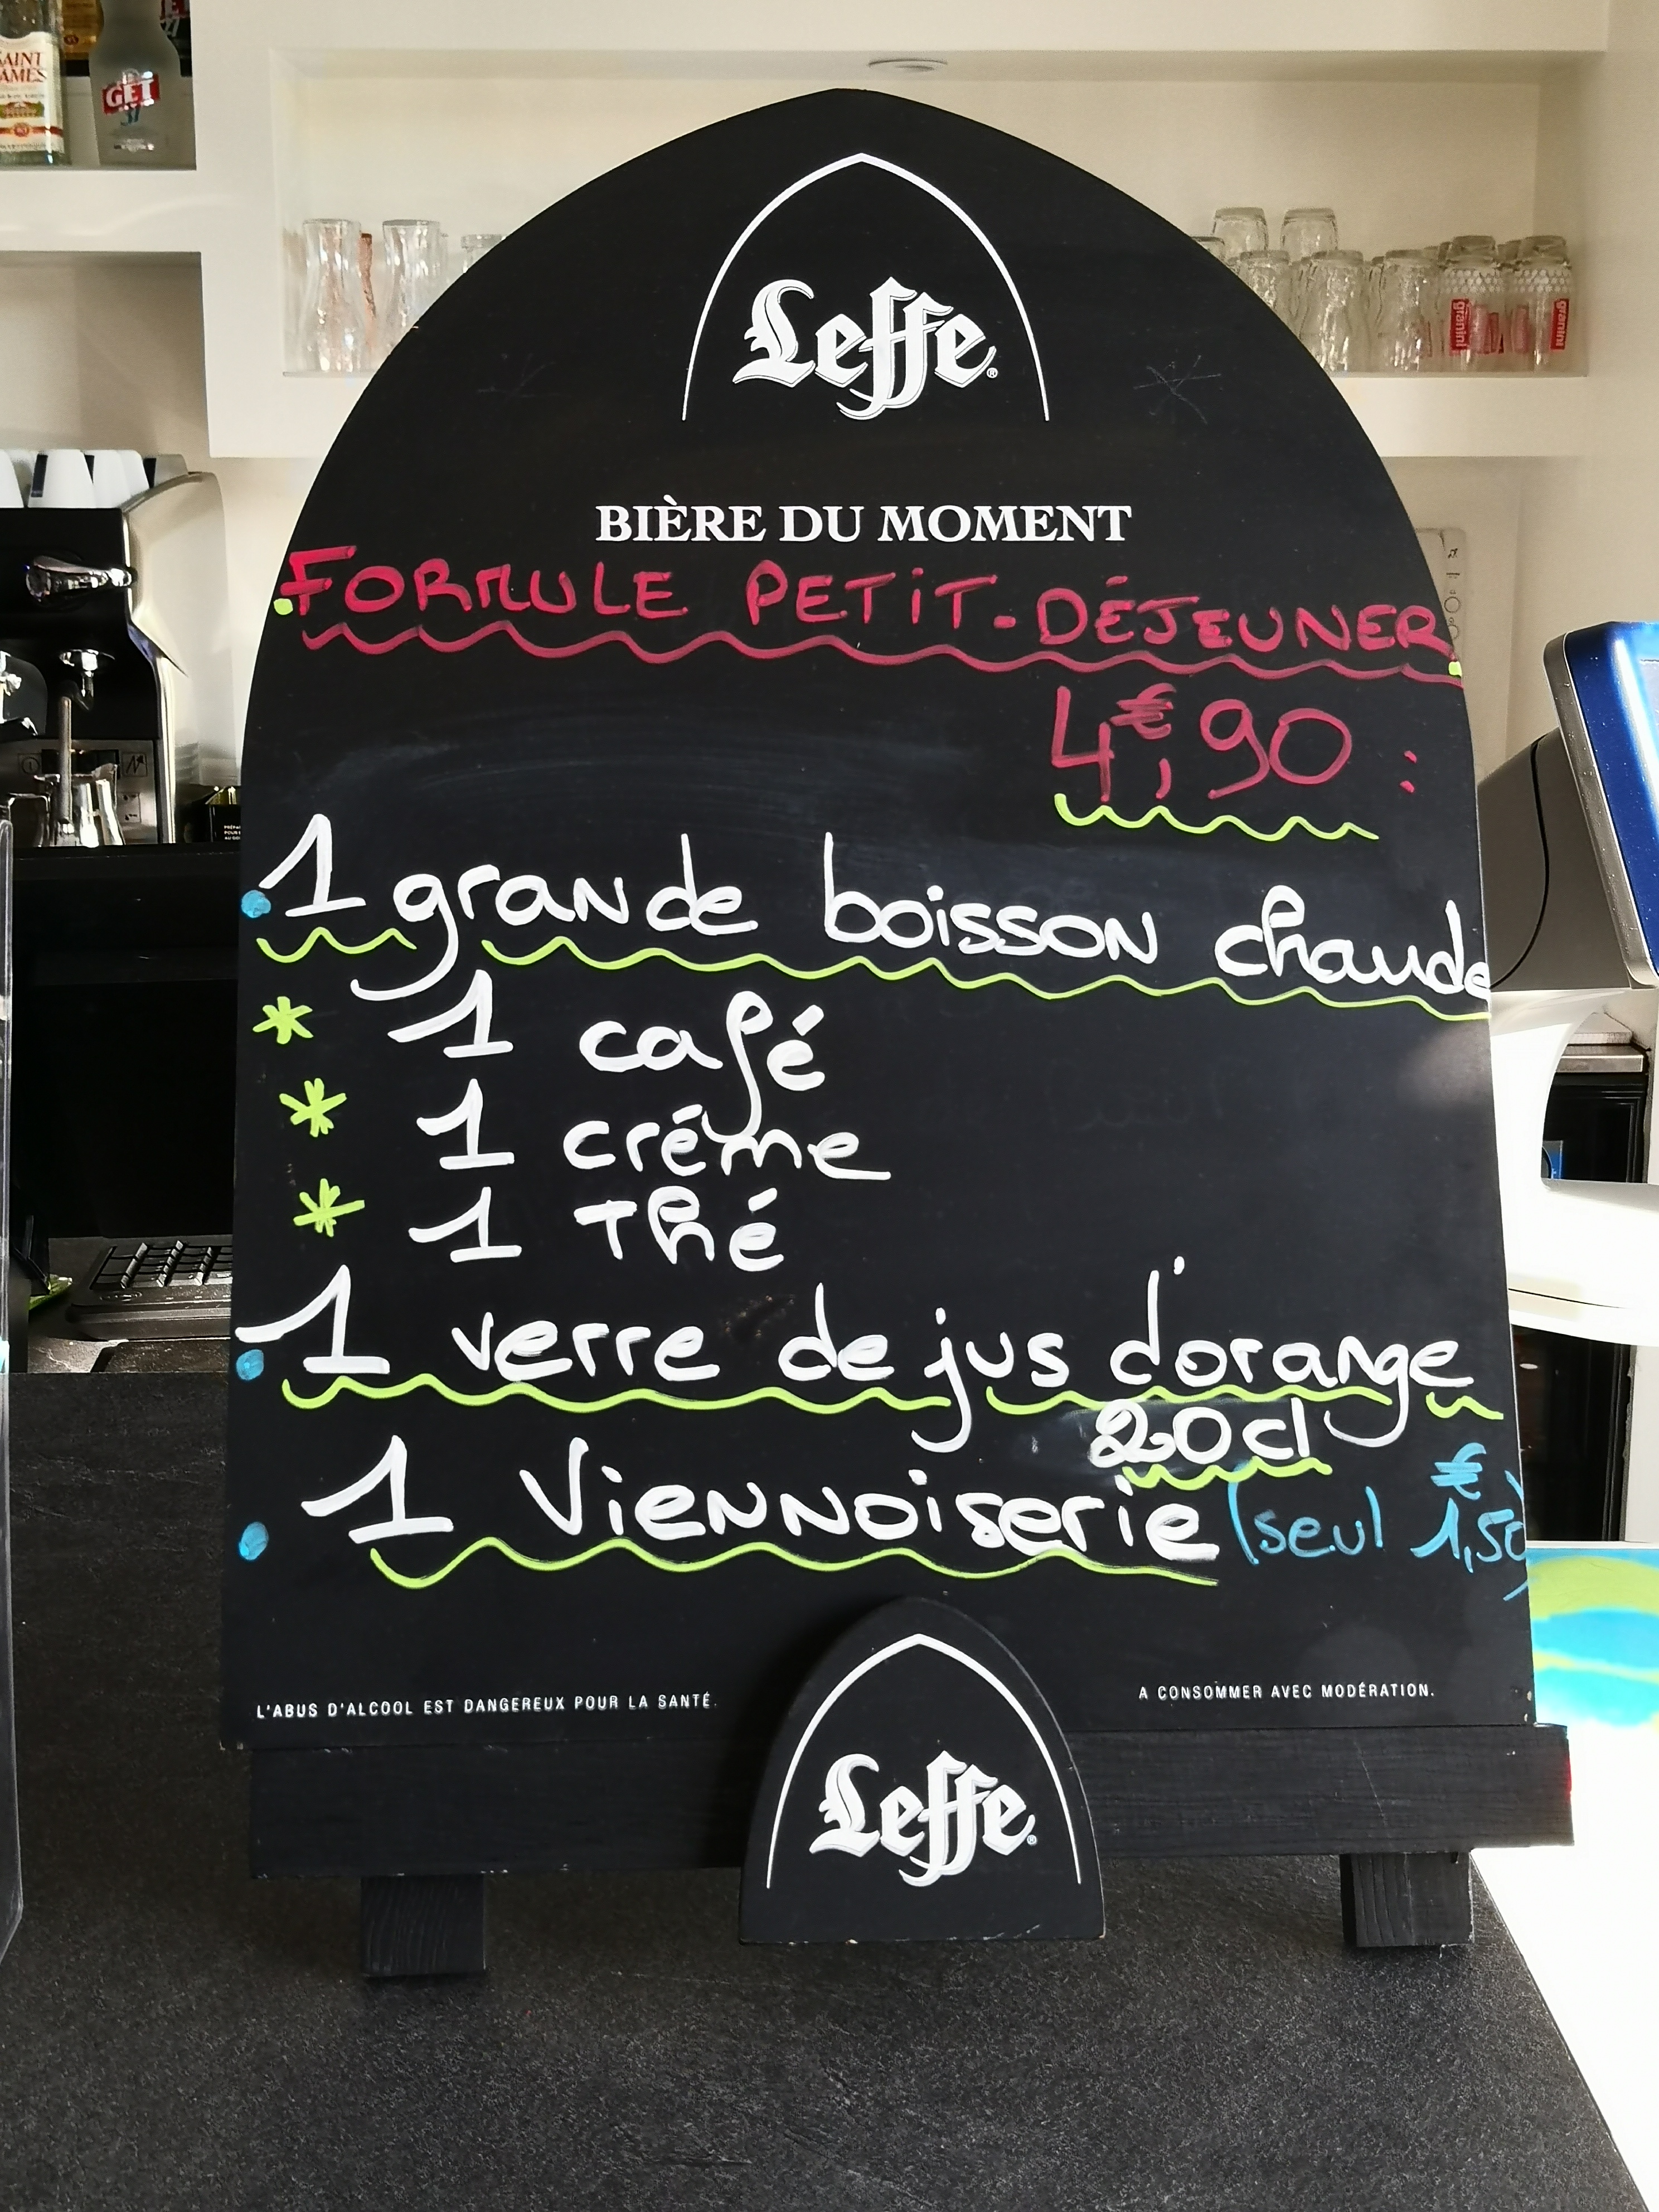 SAINT
JAMES
GET
31
Leffe®
granini
granini
BIÈRE DU MOMENT
FORMULE PETIT-DÉJEUNER
4€,90 :
1 grande boisson chaude
* 1 café
* 1 créme
* 1 Thé
1 verre de jus d'orange
20cl
1 Viennoiserie (seul 1,50€)
L'ABUS D'ALCOOL EST DANGEREUX POUR LA SANTÉ.
A CONSOMMER AVEC MODÉRATION.
Leffe®